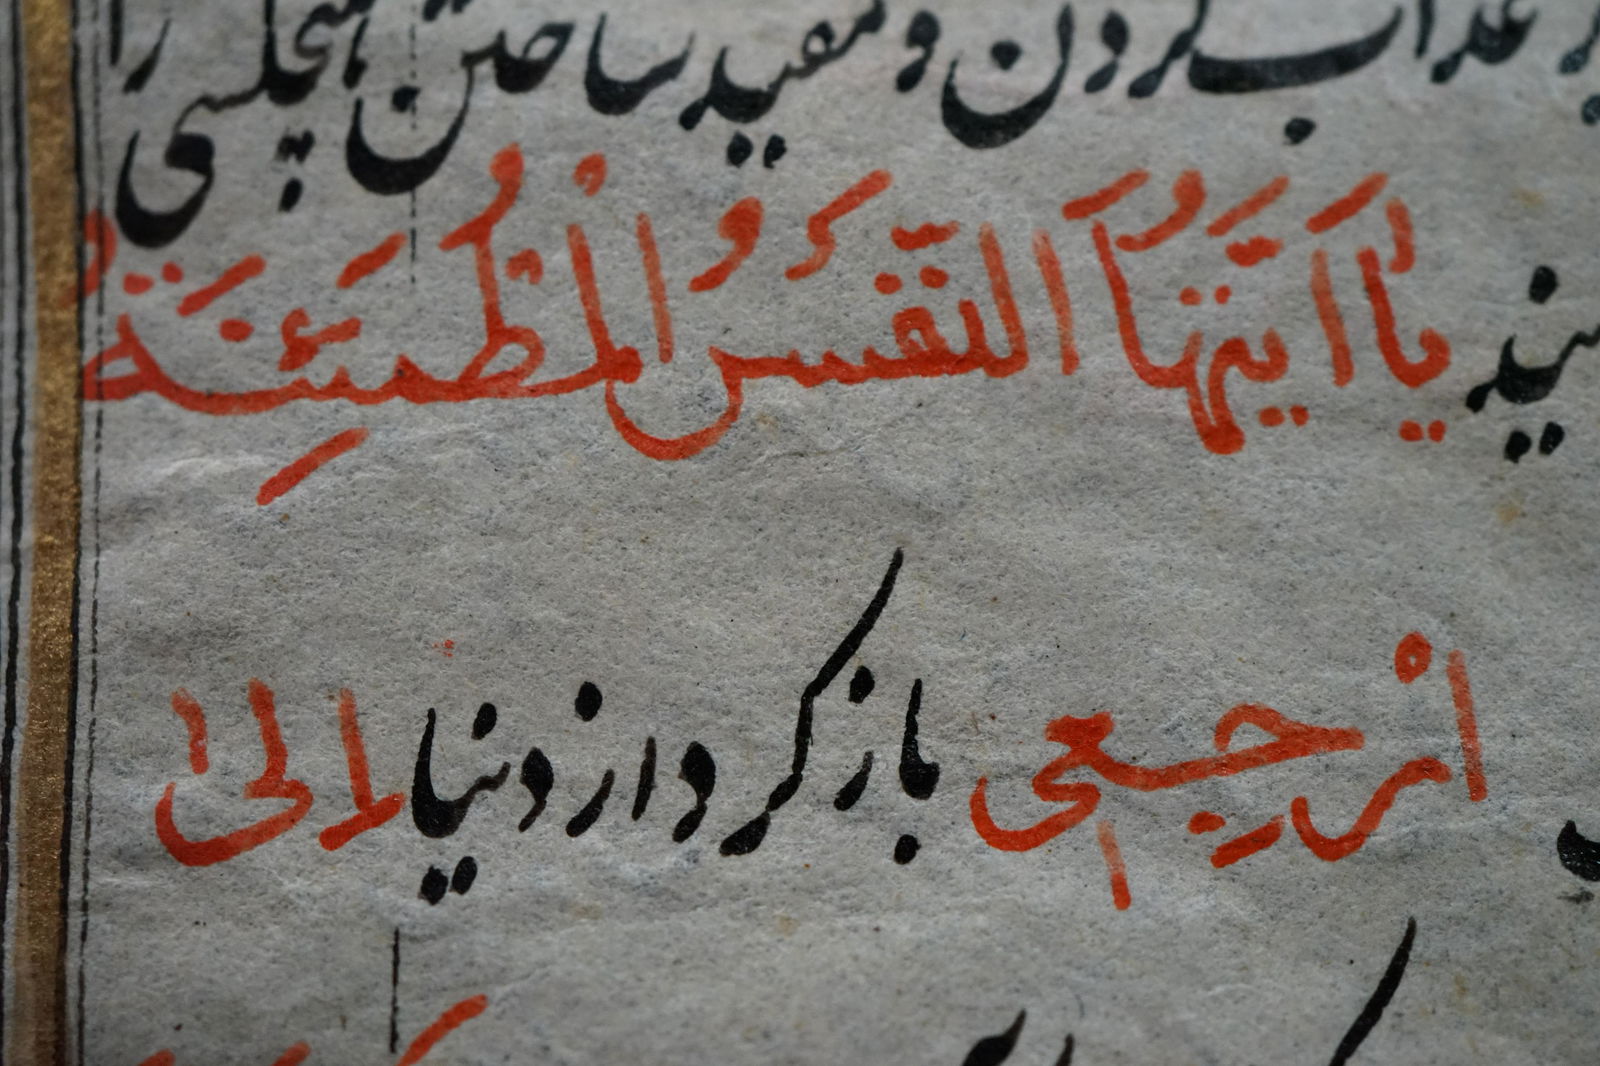 عذاب کردن و مقید ساختن هیچکسی را
یَا اَیَّتُهَا النَّفْسُ الْمُطْمَئِنَّةُ
اِرْجِعِی باز کرد از دنیا اِلیٰ